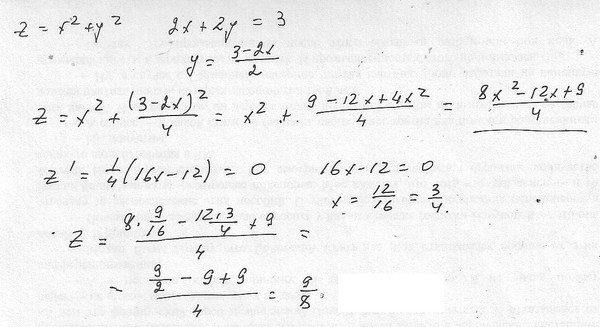 z = x² + y²    2x + 2y = 3
y = (3-2x)/2
z = x² + (3-2x)²/4 = x² + (9-12x+4x²)/4 = (8x²-12x+9)/4
z' = 1/4(16x-12) = 0    16x-12 = 0
x = 12/16 = 3/4.
z = (8·9/16 - 12·3/4 + 9)/4 =
= (9/2 - 9 + 9)/4 = 9/8.